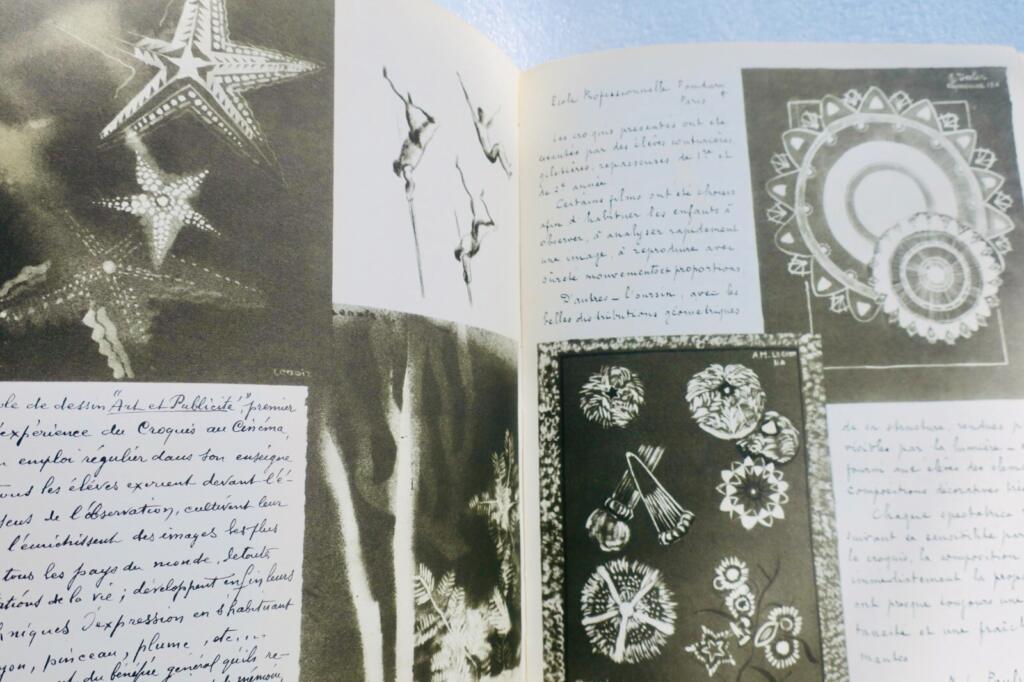 Lenoir
ole de dessin "Art et Publicité", premier
expérience du Croquis au Cinéma,
emploi régulier dans son enseigne
tous les élèves exercent devant l'é-
sens de l'observation, cultivent leur
l'enrichissent des images les plus
tous les pays du monde, de toutes
ations de la vie ; développent enfin leurs
hniques d'expression en s'habituant
yon, pinceau, plume, etc...
du bénéfice général qu'ils re-
mémoire,
Ecole Professionnelle
Paris
Les croquis présentés ont été
exécutés par des élèves couturières,
giletières, repasseuses de 1re et
de 2e année
Certains films ont été choisis
afin d'habituer les enfants à
observer, à analyser rapidement
une image, à reproduire avec
sûreté mouvements et proportions
D'autres - l'oursin, avec les
belles distributions géométriques
A.M. LECOMP
de sa structure, rendues p
visibles par la lumière
fourni aux élèves des élém
compositions décoratives trè
Chaque spectatrice
suivant sa sensibilité
le croquis, la composition
immédiatement la prop
ont presque toujours une
et une fraîch